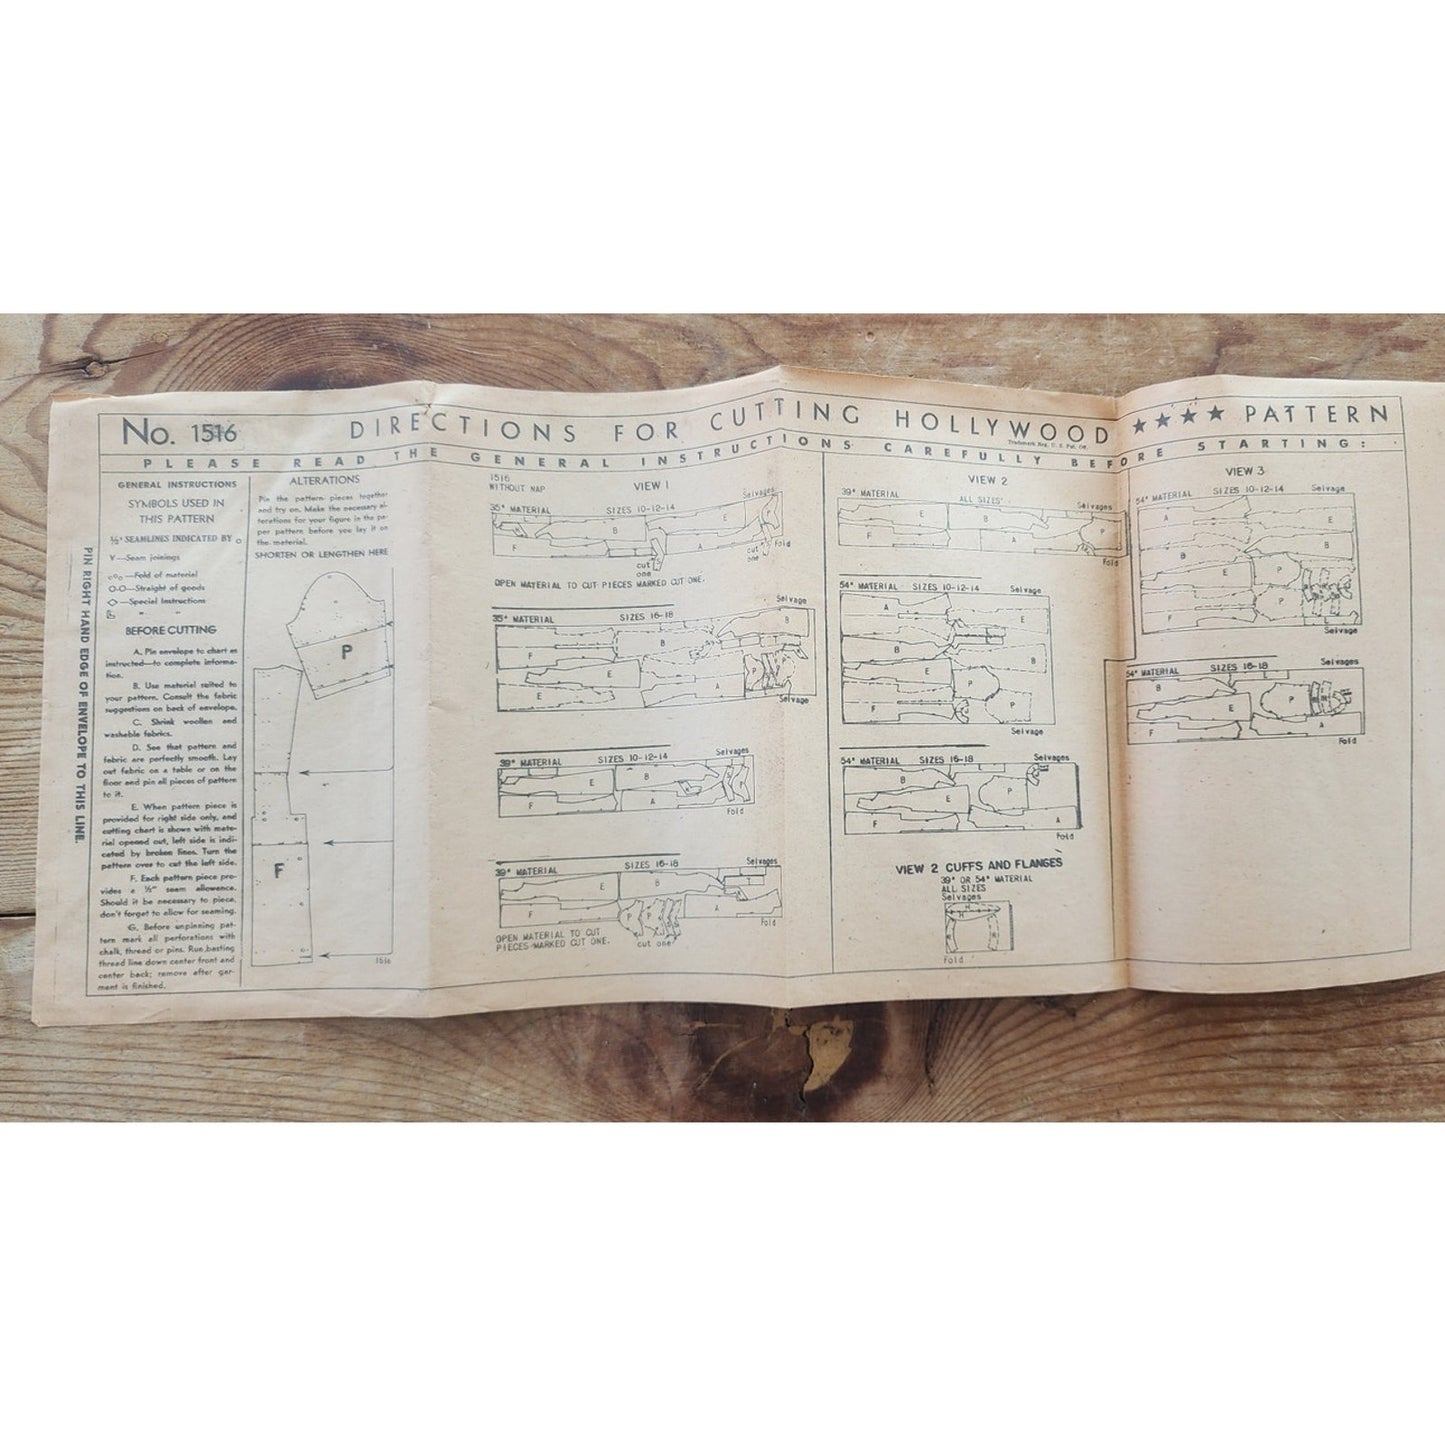 No. 1516
DIRECTIONS FOR CUTTING HOLLYWOOD ★★★★ PATTERN
Trademark Reg. U. S. Pat. Off.
PLEASE READ THE GENERAL INSTRUCTIONS CAREFULLY BEFORE STARTING:
PIN RIGHT HAND EDGE OF ENVELOPE TO THIS LINE.
GENERAL INSTRUCTIONS
SYMBOLS USED IN
THIS PATTERN
½" SEAMLINES INDICATED BY o
V—Seam joinings
—Fold of material
O-O—Straight of goods
◇—Special Instructions
BEFORE CUTTING
A. Pin envelope to chart as
instructed—to complete informa-
tion.
B. Use material suited to
your pattern. Consult the fabric
suggestions on back of envelope.
C. Shrink woollen and
washable fabrics.
D. See that pattern and
fabric are perfectly smooth. Lay
out fabric on a table or on the
floor and pin all pieces of pattern
to it.
E. When pattern piece is
provided for right side only, and
cutting chart is shown with mate-
rial opened out, left side is indi-
cated by broken lines. Turn the
pattern over to cut the left side.
F. Each pattern piece pro-
vides a ½" seam allowance.
Should it be necessary to piece,
don't forget to allow for seaming.
G. Before unpinning pat-
tern mark all perforations with
chalk, thread or pins. Run basting
thread line down center front and
center back; remove after gar-
ment is finished.
ALTERATIONS
Pin the pattern pieces together
and try on. Make the necessary al-
terations for your figure in the pa-
per pattern before you lay it on
the material.
SHORTEN OR LENGTHEN HERE
P
F
1516
1516
WITHOUT NAP
VIEW 1
35" MATERIAL SIZES 10-12-14 Selvages
E B F A
cut
one
cut
one
Fold
OPEN MATERIAL TO CUT PIECES MARKED CUT ONE.
35" MATERIAL SIZES 16-18 Selvage
B B F E A
Selvage
39" MATERIAL SIZES 10-12-14 Selvages
E B F A
Fold
39" MATERIAL SIZES 16-18 Selvages
E B T F P P A
Fold
OPEN MATERIAL TO CUT
PIECES MARKED CUT ONE.
cut one
VIEW 2
39" MATERIAL ALL SIZES Selvages
E B P F A
Fold
54" MATERIAL SIZES 10-12-14 Selvage
A E B B E P F
Selvage
54" MATERIAL SIZES 16-18 Selvages
B P E F A
Fold
VIEW 2 CUFFS AND FLANGES
39" OR 54" MATERIAL
ALL SIZES
Selvages
H
H
Fold
VIEW 3
54" MATERIAL SIZES 10-12-14 Selvage
A E B B P E P F
Selvage
54" MATERIAL SIZES 16-18 Selvages
B P E F A
Fold